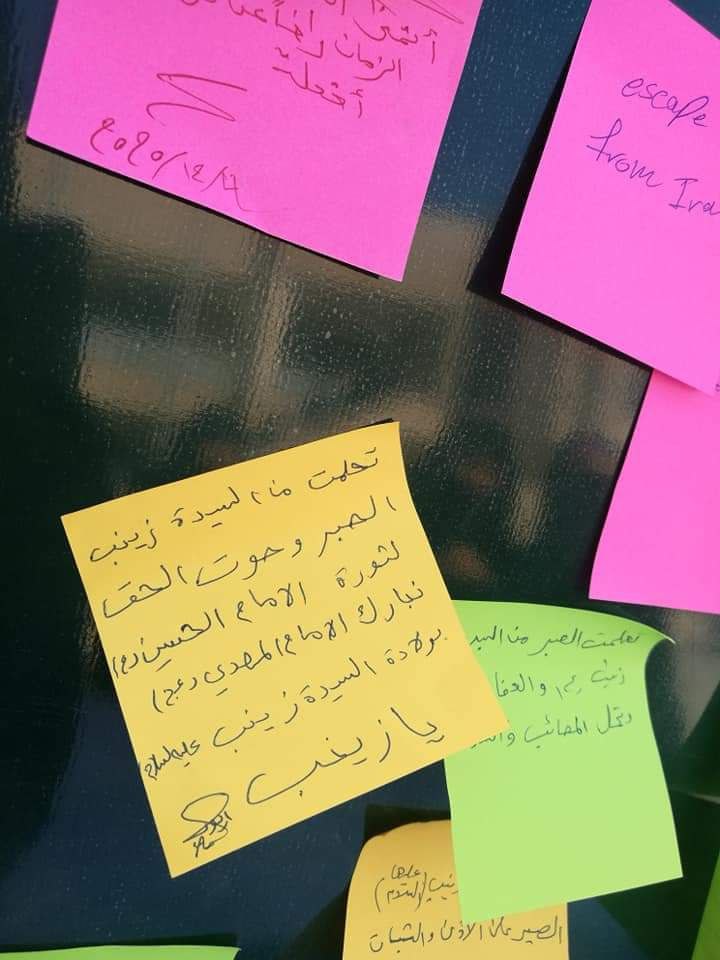 الزمان
2020/12/
escape
from Ira
تعلمت من السيدة زينب
الصبر وصوت الحق
لثورة الامام الحسين (ع)
نبارك الامام المهدي (عج)
بولادة السيدة زينب عليه السلام
يا زينب
تعلمت الصبر من السيد
زينب (ع) والعفا
وتحمل المصائب و
عليها
زينب (السلام)
الصبر على الاذى والثبات